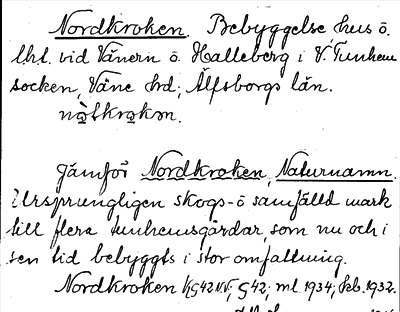 Nordkroken. Bebyggelse hus o.
lht. vid Vänern ö. Halleberg i V. Tunhem
socken, Väne hd; Älfsborgs län.
nɷtkrɷkɷn.
Jämför Nordkroken, Naturnamn.
Ursprungligen skogs- o samfälld mark
till flera tunhemsgårdar, som nu och i
sen tid bebyggts i stor omfattning.
Nordkroken G42; ml 1934; skb. 1932.